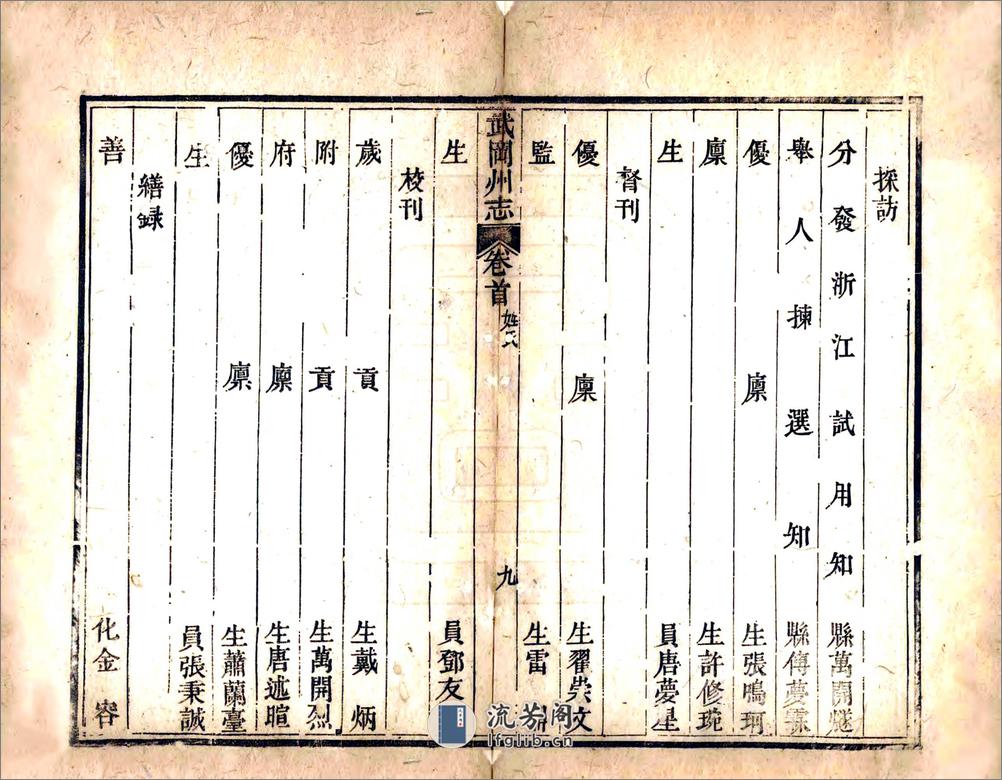 採訪
分發浙江試用知縣萬開
舉人揀選知縣傅夢
優廩生張鳴珂
廩生許修琬
生員唐夢星
督刊
優廩生翟崇文
監生雷
武岡州志 卷首 姓氏 九
生員鄧友
校刊
歲貢生戴炳
附貢生萬開烈
府廩生唐述暄
優廩生蕭蘭臺
生員張秉誠
繕錄
善化金容
流芳阁
lfglib.cn